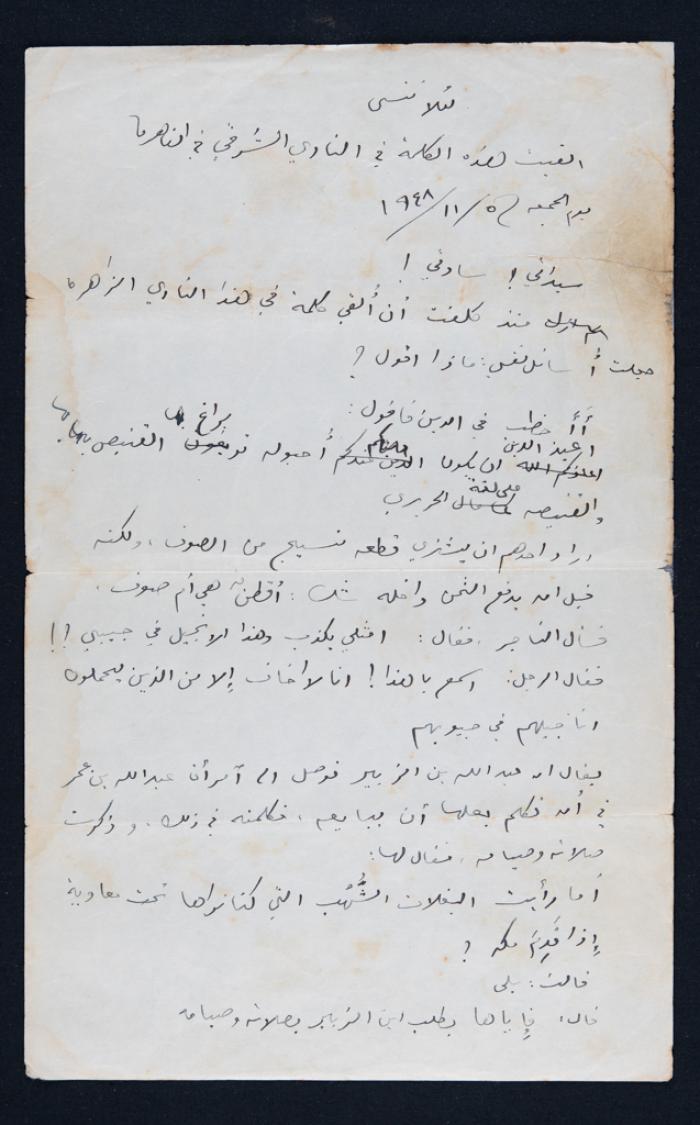 لئلا ننسى
القيت هذه الكلمة في النادي الشرقي في القاهرة
يوم الجمعة ٥/١١/١٩٤٨
سيداتي! سادتي!
منذ كلفت أن أُلقي كلمة في هذا النادي الزاهر
جعلت أُسائل نفسي: ماذا اقول؟
أَأَخطب في الدين فاقول:
اعيذ الدين
ان يكون أُحبولة يراغ بها القنيص
والقنيصة على لغة الحريري
اراد احدهم ان يشتري قطعة نسيج من الصوف، ولكنه
قبل ان يدفع الثمن داخله شك: أقطن هي أم صوف.
فسأل التاجر، فقال: امثلي يكذب وهذا الانجيل في جيبي!!
فقال الرجل: اسمع يا هذا! انا لا اخاف إلا من الذين يحملون
اناجيلهم في جيوبهم
يقال ان عبد الله بن الزبير توصل الى امرأة عبد الله بن عمر
في أن تكلم بعلها أن يبايعه، فكلمته في ذلك، وذكرت
صلاته وصيامه، فقال لها:
أما رأيت البغلات الشُّهُب التي كنا نراها تحت معاوية
إذا قَدِمَ مكة؟
قالت: بلى
قال: فإياها يطلب ابن الزبير بصلاته وصيامه